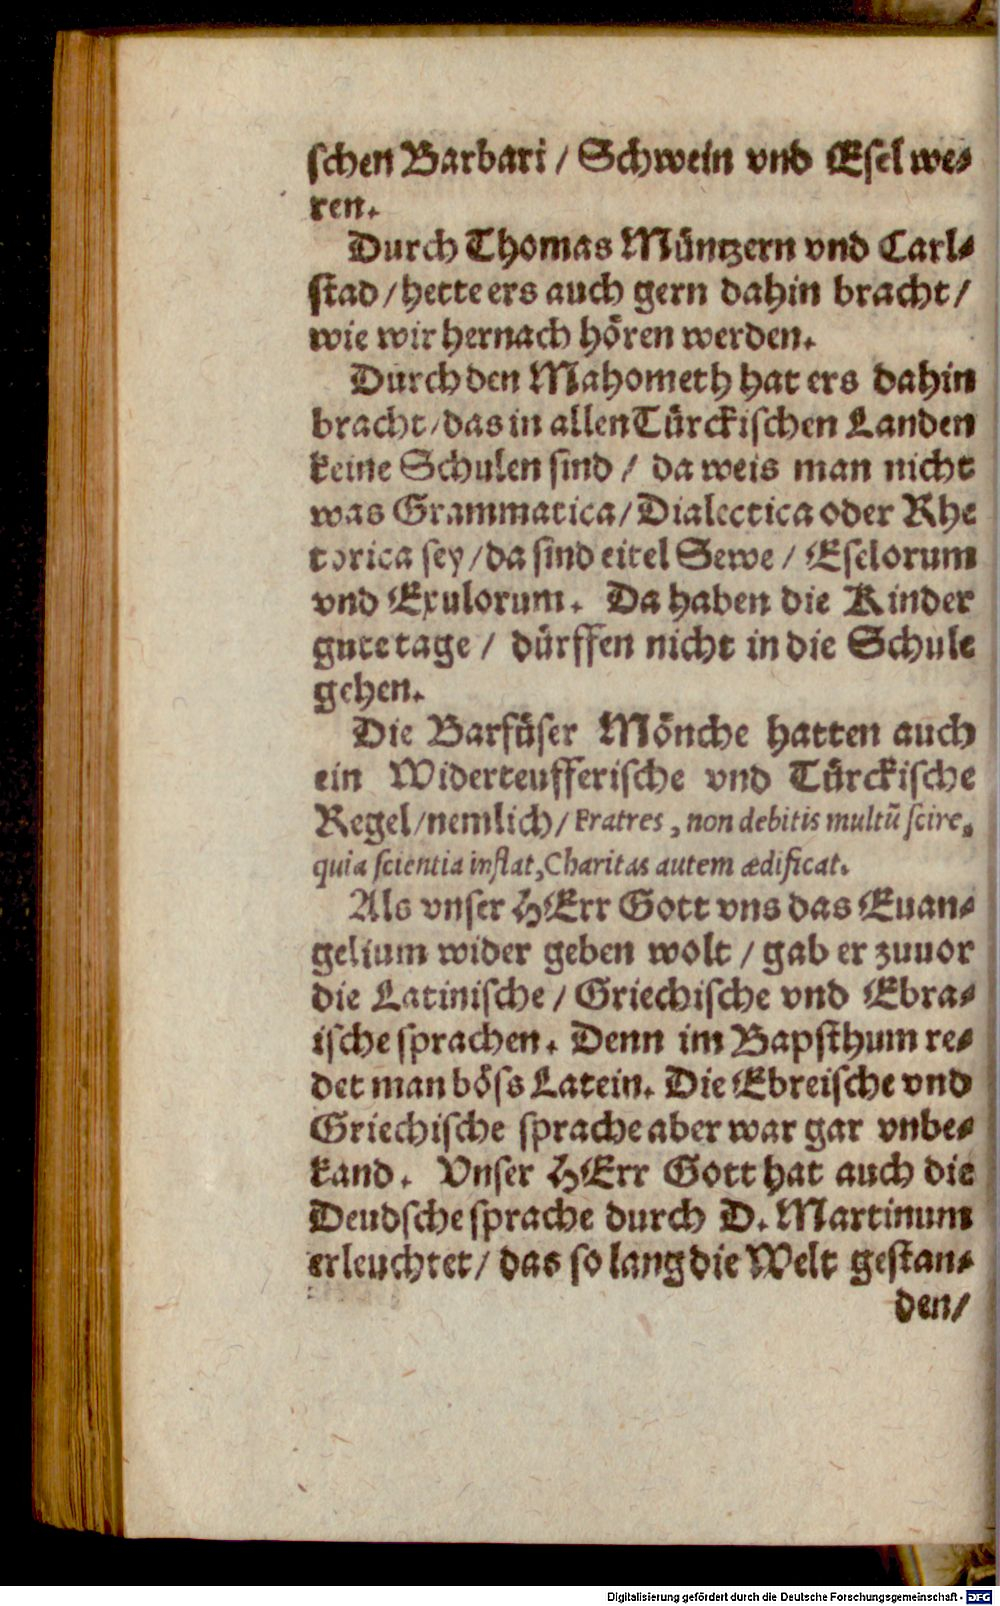 schen Barbari / Schwein vnd Esel we-
ren.
Durch Thomas Müntzern vnd Carl-
stad / hette ers auch gern dahin bracht /
wie wir hernach hören werden.
Durch den Mahometh hat ers dahin
bracht / das in allen Türckischen Landen
keine Schulen sind / da weis man nicht
was Grammatica / Dialectica oder Rhe
torica sey / da sind eitel Sewe / Eselorum
vnd Exulorum. Da haben die Kinder
gute tage / dürffen nicht in die Schule
gehen.
Die Barfüser Mönche hatten auch
ein Widerteufferische vnd Türckische
Regel / nemlich / Fratres, non debitis multũ scire,
quia scientia inflat, Charitas autem ædificat.
Als vnser HErr Gott vns das Euan-
gelium wider geben wolt / gab er zuuor
die Latinische / Griechische vnd Ebra-
ische sprachen. Denn im Bapsthum re-
det man böss Latein. Die Ebreische vnd
Griechische sprache aber war gar vnbe-
kand. Vnser HErr Gott hat auch die
Deudsche sprache durch D. Martinum
erleuchtet / das so lang die Welt gestan-
den /
Digitalisierung gefördert durch die Deutsche Forschungsgemeinschaft - DFG